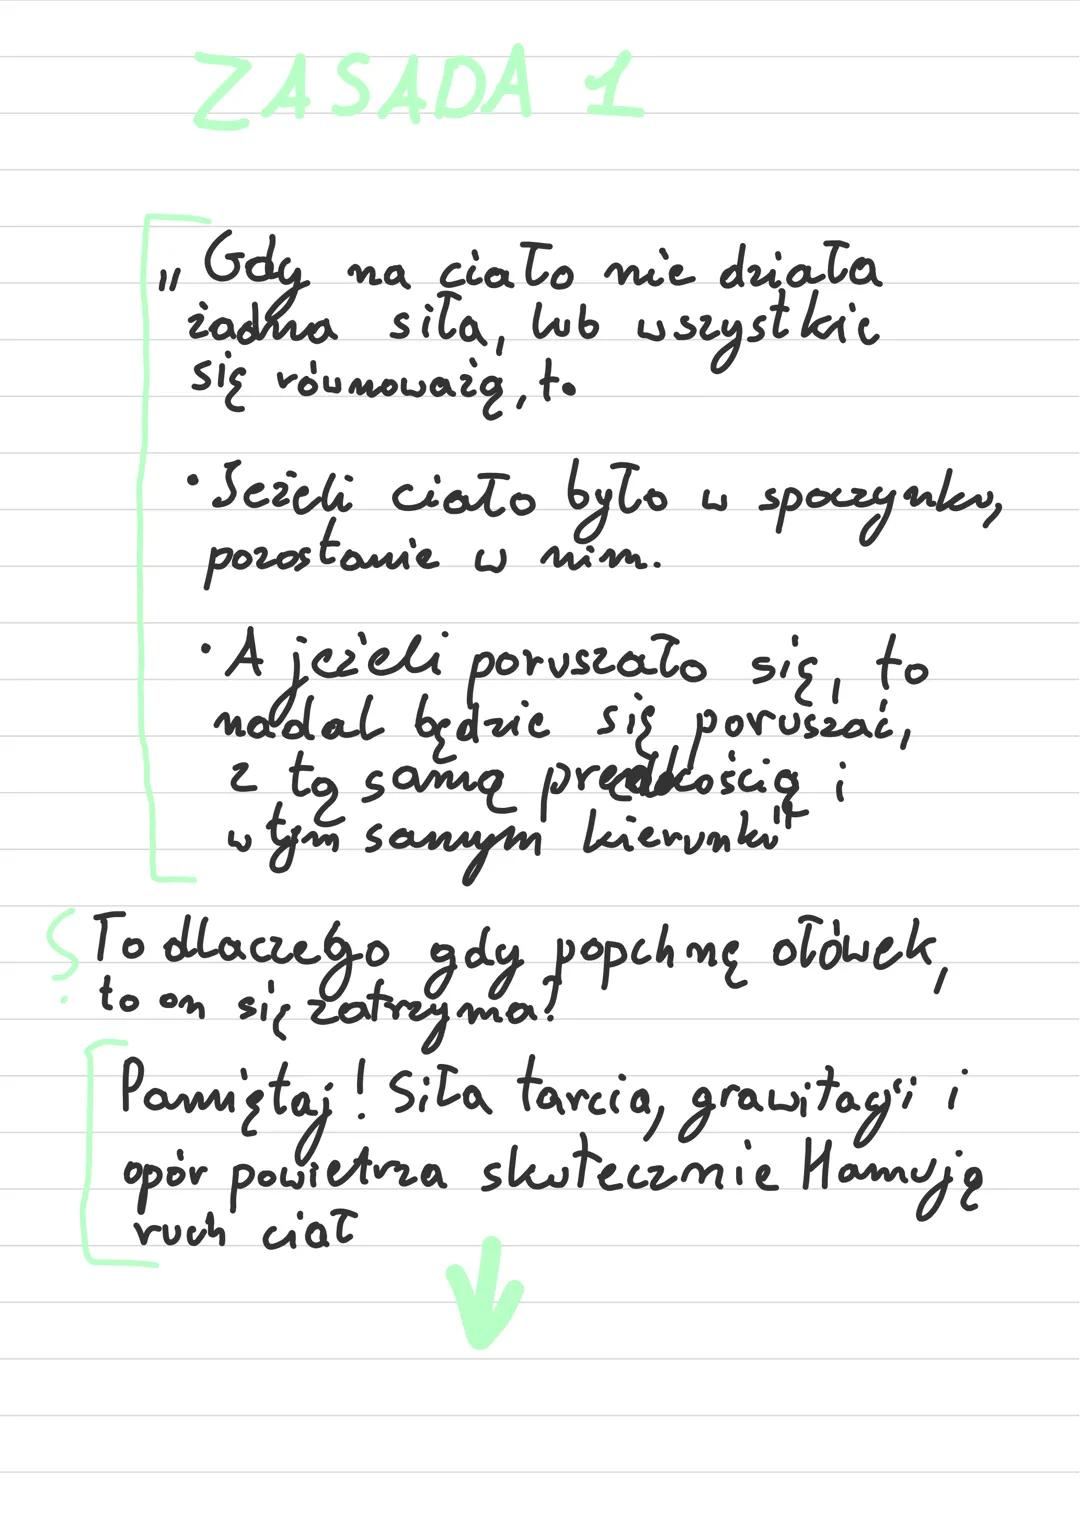 ZASADA 1
„Gdy na ciało nie działa
żadna siła, lub wszystkie
się równoważą, to
• Jeżeli ciało było w spoczynku,
pozostanie w nim.
• A jeżeli poruszało się, to
nadal będzie się poruszać,
z tą samą prędkością i
w tym samym kierunku"
? To dlaczego gdy popchnę ołówek,
to on się zatrzyma?
Pamiętaj! Siła tarcia, grawitacji i
opór powietrza skutecznie Hamują
ruch ciał